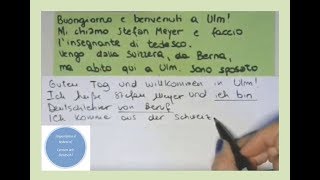 Buongiorno e benvenuti a Ulm!
Mi chiamo Stefan Meyer e faccio
l'insegnante di tedesco.
Vengo dalla Svizzera, da Berna,
ma abito qui a Ulm. Sono sposato
Guten Tag und willkommen in Ulm!
Ich heiße Stefan Meyer und ich bin
Deutschlehrer von Beruf.
Ich komme aus der Schweiz